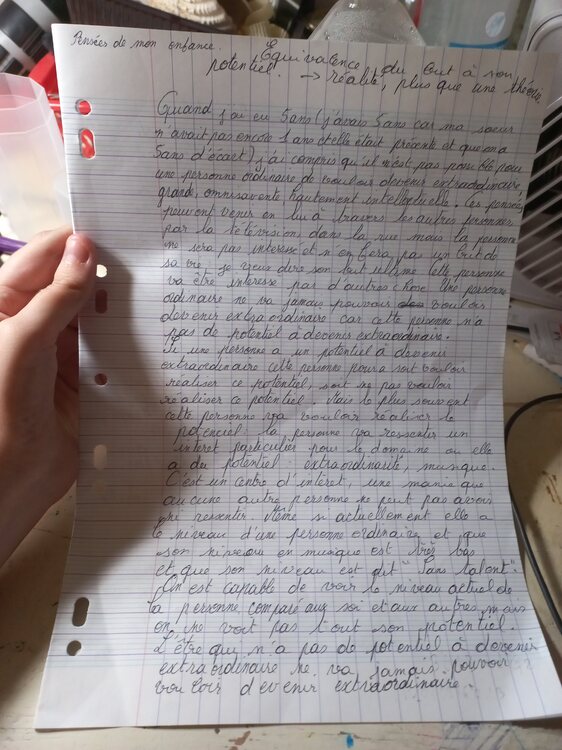 Pensées de mon enfance.
Equivalence du but à son
potentiel. → réalité, plus que une théorie
Quand j'ai eu 5 ans (j'avais 5 ans car ma soeur
n'avait pas encore 1 ans et elle était présente et que on a
5 ans d'écart) j'ai compris qu'il n'est pas possible pour
une personne ordinaire de vouloir devenir extraordinaire,
grande, omnisciente hautement intellectuelle. Ces pensées
peuvent venir en lui à travers les autres personnes
par la télévision, dans la rue mais la personne
ne sera pas interessé et n'en fera pas un but de
sa vie, je veux dire son but ultime cette personne
va être interessé par d'autres chose. Une personne
ordinaire ne va jamais pouvoir vouloir
devenir extraordinaire car cette personne n'a
pas de potentiel à devenir extraordinaire.
Si une personne a un potentiel à devenir
extraordinaire cette personne pourra soit vouloir
réaliser ce potentiel, soit ne pas vouloir
réaliser ce potentiel. Mais le plus souvent
cette personne va vouloir réaliser le
potenciel : la personne va ressentir un
interet particulier pour le domaine ou elle
a du potentiel : extraordinarité, musique.
C'est un centre d'interet, une manie que
aucune autre personne ne peut pas avoir
ni ressentir. Même si actuellement elle a
le niveau d'une personne ordinaire et que
son niveau en musique est très bas
et que son niveau est dit "sans talent".
On est capable de voir le niveau actuel de
la personne comparé aux soi et aux autres, mais
on ne voit pas tout son potentiel.
L'être qui n'a pas de potentiel à devenir
extraordinaire ne va jamais pouvoir
vouloir devenir extraordinaire.